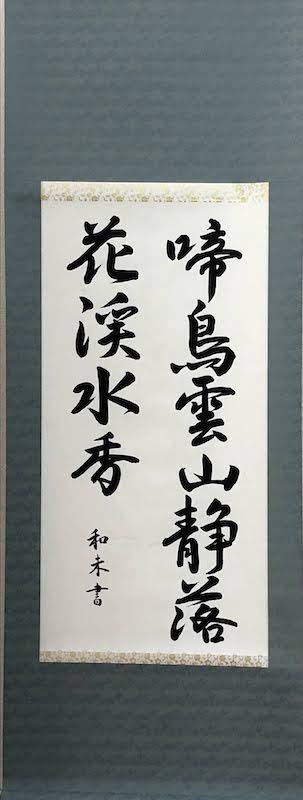 啼鳥雲山静落
花渓水香
和未書